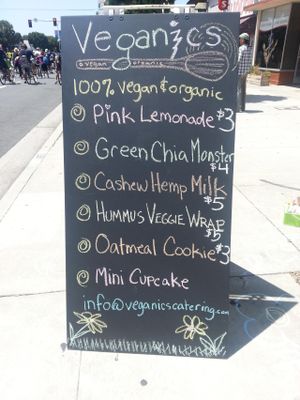 Veganics
vegan organic
100% vegan & organic
Pink Lemonade $3
Green Chia Monster $4
Cashew Hemp Milk $5
HUMMUS VEGGIE WRAP $5
Oatmeal Cookie $3
Mini Cupcake
info@veganicscatering.com